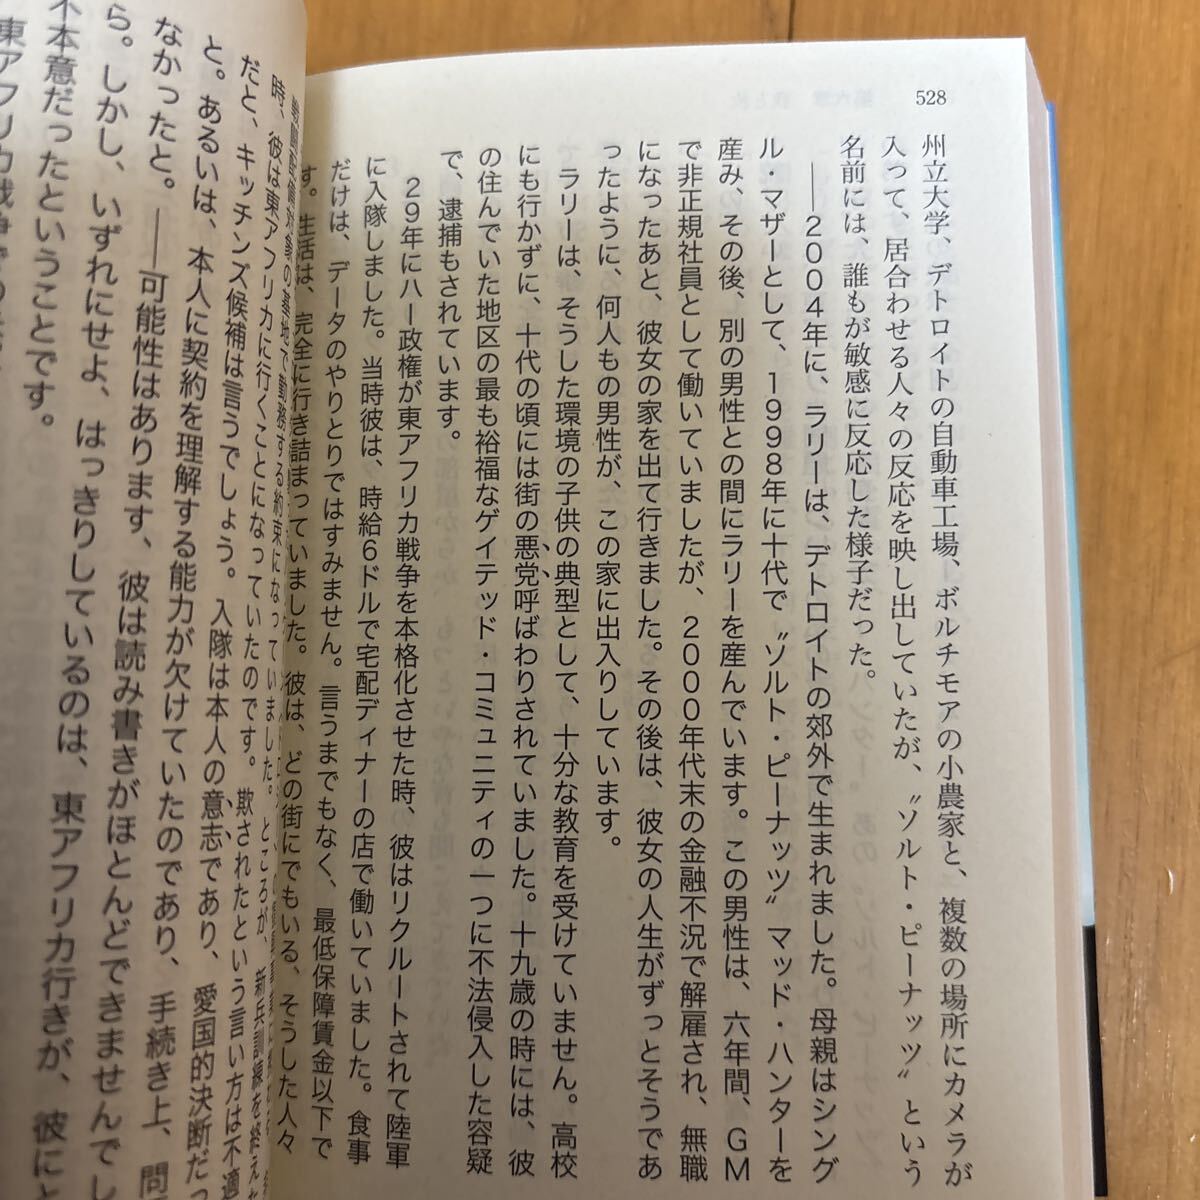 528
州立大学、デトロイトの自動車工場、ボルチモアの小農家と、複数の場所にカメラが
入って、居合わせる人々の反応を映し出していたが、〝ソルト・ピーナッツ〟という
名前には、誰もが敏感に反応した様子だった。
――2004年に、ラリーは、デトロイトの郊外で生まれました。母親はシング
ル・マザーとして、1998年に十代で〝ソルト・ピーナッツ〟マッド・ハンターを
産み、その後、別の男性との間にラリーを産んでいます。この男性は、六年間、GM
で非正規社員として働いていましたが、2000年代末の金融不況で解雇され、無職
になったあと、彼女の家を出て行きました。その後は、彼女の人生がずっとそうであ
ったように、何人もの男性が、この家に出入りしています。
ラリーは、そうした環境の子供の典型として、十分な教育を受けていません。高校
にも行かずに、十代の頃には街の悪党呼ばわりされていました。十九歳の時には、彼
の住んでいた地区の最も裕福なゲイテッド・コミュニティの一つに不法侵入した容疑
で、逮捕もされています。
29年にハー政権が東アフリカ戦争を本格化させた時、彼はリクルートされて陸軍
に入隊しました。当時彼は、時給6ドルで宅配ディナーの店で働いていました。食事
だけは、データのやりとりではすみません。言うまでもなく、最低保障賃金以下で
す。生活は、完全に行き詰まっていました。彼は、どの街にでもいる、そうした人々
の基地で勤務する約束になっていました。ところが、新兵訓練を終えた
時、彼は東アフリカに行くことになっていたのです。欺されたという言い方は不適
だと、キッチンズ候補は言うでしょう。入隊は本人の意志であり、愛国的決断だっ
と。あるいは、本人に契約を理解する能力が欠けていたのであり、手続き上、問
なかったと。――可能性はあります、彼は読み書きがほとんどできませんでし
ら。しかし、いずれにせよ、はっきりしているのは、東アフリカ行きが、彼に
不本意だったということです。
東アフリカ戦争での